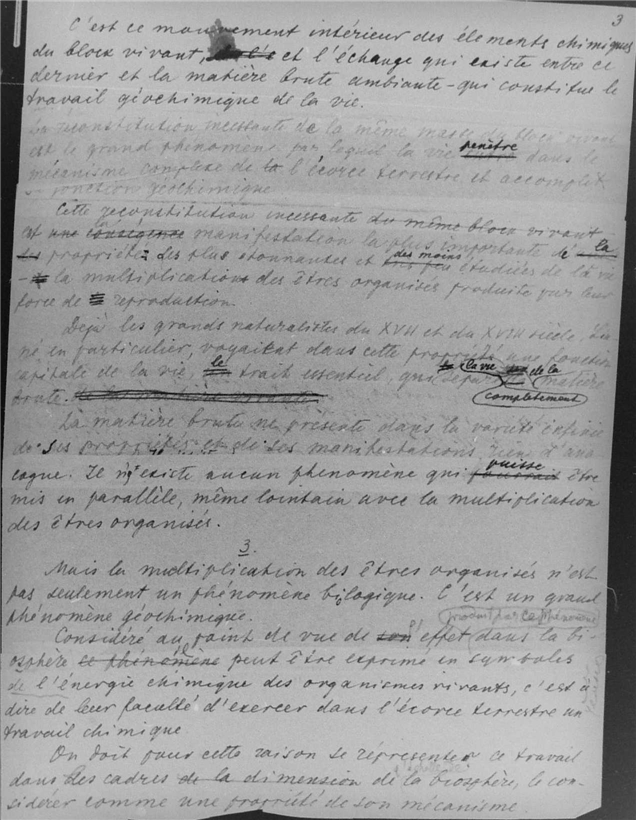 3
C'est ce mouvement intérieur des éléments chimiques
du bloc vivant, et l'échange qui existe entre ce
dernier et la matière brute ambiante - qui constitue le
travail géochimique de la vie.
La reconstitution incessante de la même masse du bloc vivant
est le grand phénomène par lequel la vie penètre dans le
mécanisme complexe de l'écorce terrestre et accomplit
fonction géochimique
Cette reconstitution incessante du même bloc vivant
est une conséquence manifestation la plus importante de la
propriété: des plus étonnantes et des moins étudiées de la vie
- la multiplication des êtres organisés produite par leur
force de reproduction.
Dejà les grands naturalistes du XVII et du XVIII siècle, Lin-
né en particulier, voyaient dans cette propriété une fonction
capitale de la vie, le trait essentiel, qui separe la vie de la matière
brute. completement
La matière brute ne présente dans la variété infinie
de ses propriétés et de ses manifestations rien d'ana-
logue. Il n'existe aucun phenomène qui puisse être
mis en parallèle, même lointain avec la multiplication
des êtres organisés.
3.
Mais la multiplication des êtres organisés n'est
pas seulement un phénomène biologique. C'est un grand
phénomène géochimique.
produit par ce phénomène
Considéré au point de vue de son effet dans la bi-
osphère ce phénomène peut être exprimé en symboles
de l'énergie chimique des organismes vivants, c'est à
dire de leur faculté d'exercer dans l'écorce terrestre un
travail chimique
On doit pour cette raison se répresenter ce travail
dans les cadres de la dimension de la biosphère, le con-
sidérer comme une propriété de son mécanisme.